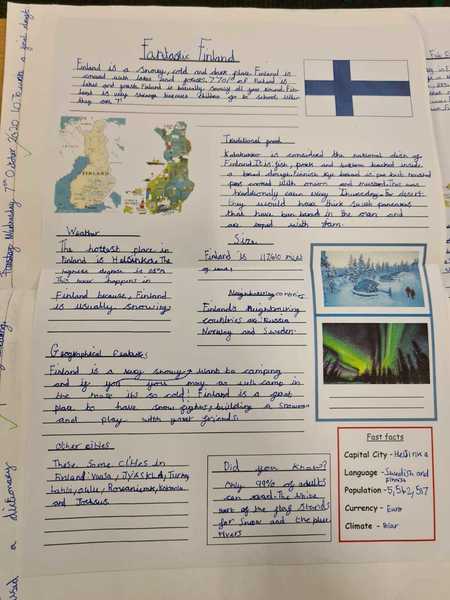 Fantastic Finland
Finland is a snowy, cold and dark place. Finland is
covered with lakes and forests. 75% of Finland is
lakes and forests. Finland is basically snowy all year round. Fin-
land is very strange because children go to school when
they are 7!
FINLAND
Traditional food
Kalakukko is considered the national dish of
Finland. It is fish, pork and bacon backed inside
a bread dough. Finnish
pea with onion and mustard. This was
traditionally eaten every Thursday. For dessert
they would have thick pancakes
that have been in the oven and
are toped with jam.
Weather
The hottest place in
Finland is Helsinki. The
highest degree is
This happens in
Finland because, Finland
is usually snowing.
Size
Finland is miles
of land!
Neighbouring countries
Finland's Neighbouring
countries are Russia
Norway and Sweden.
Geographical features
Finland is a very snowy. Want to camping
and if you you may as well camp in
the house its so cold! Finland is a great
place to have snow fights, building a snowman
and play with your friends.
Other cities
These some cities in
Finland: Vaasa, JYÄSKLÄ, Turku,
Lahti, Oulu, Rovaniemi, Kokkola
and Joensuu
Did you know?
Only 99% of adults
can read. The white
part of the flag stands
for snow and the blue
rivers
Fast facts
Capital City - Helsinki
Language - Swedish and
Finnish
Population - 5,562,517
Currency - Euro
Climate - Polar
Wednesday 7th October 2020
a dictionary